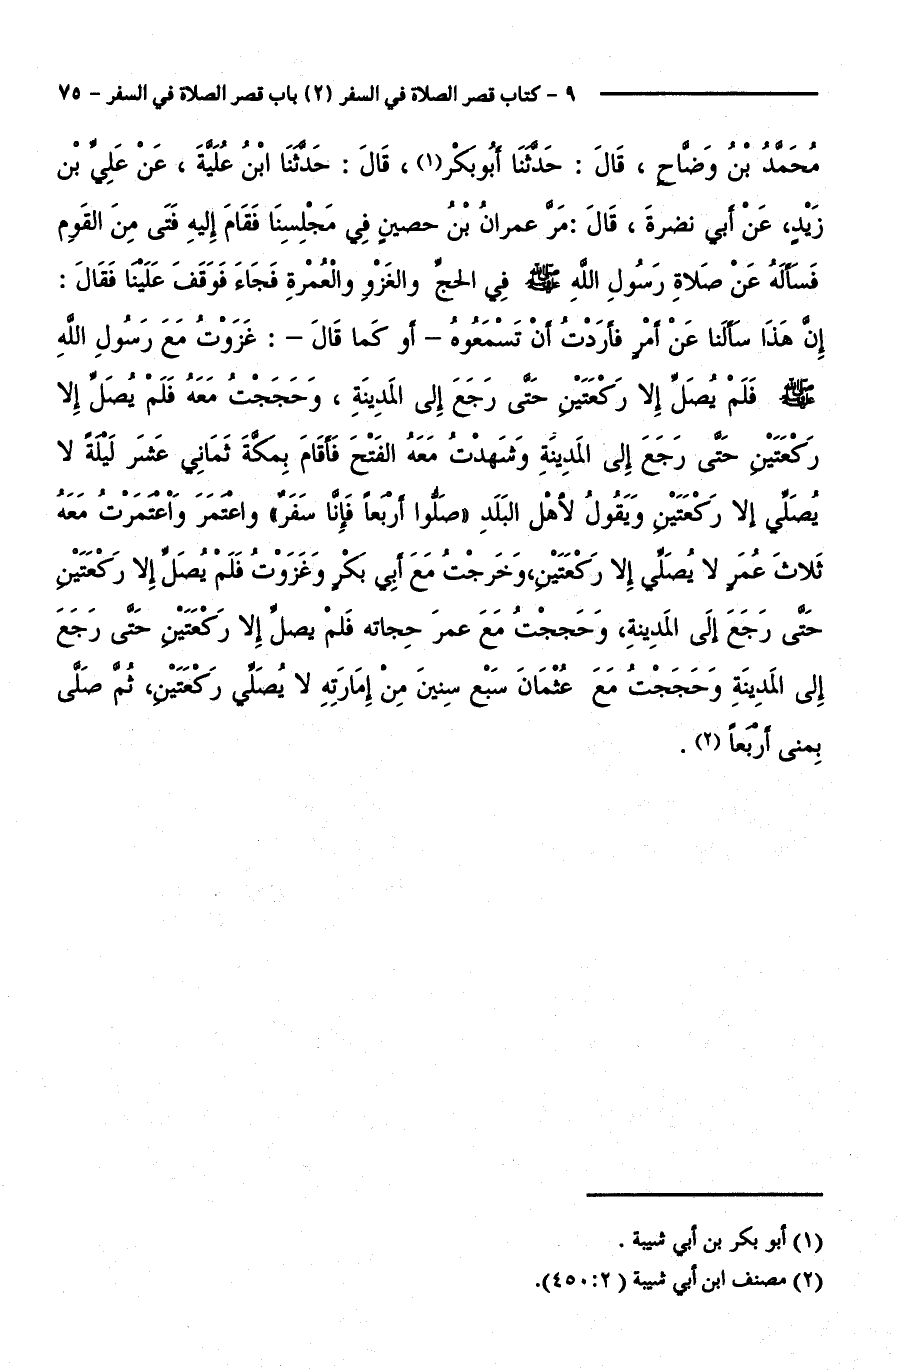 ٩ - كتاب قصر الصلاة في السفر (٢) باب قصر الصلاة في السفر - ٧٥
مُحَمَّدُ بْنُ وَضَّاحٍ ، قَالَ : حَدَّثَنَا أَبُوبَكْر(١) ، قَالَ : حَدَّثَنَا ابْنُ عُلَيَّةَ ، عَنْ عَلِيِّ بْنِ
زَيْدٍ، عَنْ أَبي نضرةَ ، قَالَ :مَرَّ عمرانُ بْنُ حصينٍ فِي مَجْلِسِنَا فَقَامَ إِليهِ فَتَى مِنَ القَوِم
فَسأَلَهُ عَنْ صَلَاةِ رَسُولِ اللَّهِ ﷺ فِي الحجِّ والغَزْوِ والْعُمْرةِ فَجَاءَ فَوَقَفَ عَلَيْنَا فَقَالَ :
إِنَّ هَذَا سَأَلَنا عَنْ أَمْرٍ فأَرَدْتُ أَنْ تَسْمَعُوهُ – أو كَما قَالَ – : غَزَوْتُ مَعَ رَسُولِ اللَّهِ
ﷺ فَلَمْ يُصَلِّ إِلا رَكْعَتَيْنِ حَتَّى رَجَعَ إِلى المَدِينَةِ ، وَحَجَجْتُ مَعَهُ فَلَمْ يُصَلِّ إِلا
رَكْعَتَيْنِ حَتَّى رَجَعَ إِلى المَدِينَةِ وَشَهدْتُ مَعَهُ الفَتْحَ فَأَقَامَ بِمَكَّةَ ثَمَانِي عَشَرَ لَيْلَةً لا
يُصَلِّي إلا رَكْعَتَيْنِ وَيَقُولُ لأَهْلِ البَلَدِ «صَلُّوا أَرْبَعاً فَإِنَّا سَفَرٌ» واعتَمَرَ وَاعْتَمَرْتُ مَعَهُ
ثَلاثَ عُمَرٍ لا يُصَلِّي إلا رَكْعَتَيْنِ،وَخَرجْتُ مَعَ أَبِي بَكْرٍ وَغَزَوْتُ فَلَمْ يُصَلِّ إلا رَكْعَتَيْنِ
حَتَّى رَجَعَ إلَى المَدِينةِ، وَحَججْتُ مَعَ عمرَ حجاته فَلمْ يصلِّ إلا رَكْعَتَيْنِ حَتَّى رَجَعَ
إِلى المَدِينَةِ وَحَجَجْتُ مَعَ عُثْمَانَ سَبْع سِنِينَ مِنْ إِمَارَتِهِ لا يُصَلِّي رَكْعَتَيْنِ، ثُمَّ صَلَّى
بِمنى أَرْبَعاً (٢) .
(١) أبو بكر بن أبي شيبة .
(٢) مصنف ابن أبي شيبة ( ٢:٤٥٠).